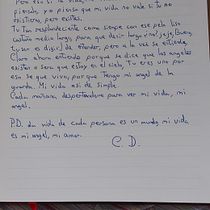 Pero eso si, la vida
pienso, yo pienso que mi vida no vale si tu no
existieras, pero existes.
Tu tan resplandeciente como siempre con ese pelo liso
castaño medio largo, para que decir largo vino? jeje, Bueno
tu eso es dificil de entender, pero a la vez se entiende.
Claro ahora entiendo porque se dice que los angeles
existen o sera que estoy en el cielo, Tu eres uno por
eso se que vivo, por que Tengo mi angel de la
guarda. Mi vida asi de simple.
Cada mañana despertandome para ver mi vida, mi
angel.
P.D. La vida de cada persona es un mundo, mi vida
es mi angel, mi amor.
C. D.